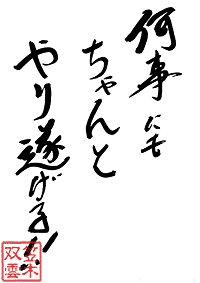 何事にも
ちゃんと
やり遂げる!!
双雲